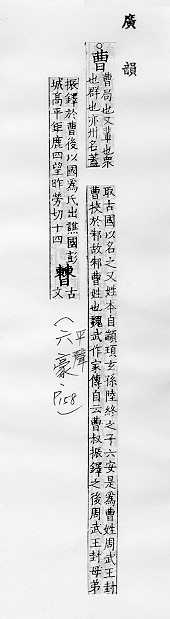 廣韻
曹
曹局也又輩也衆
也群也亦州名蓋
取古國以名之又姓本自顓頊玄孫陸終之子六安是爲曹姓周武王封
曹挾於邾故邾曹姓也魏武作家傳自云曹叔振鐸之後周武王封母弟
振鐸於曹後以國爲氏出譙國彭
城高平鉅鹿四望昨勞切十四
𣍘
古
文
(平聲
六豪
P158)